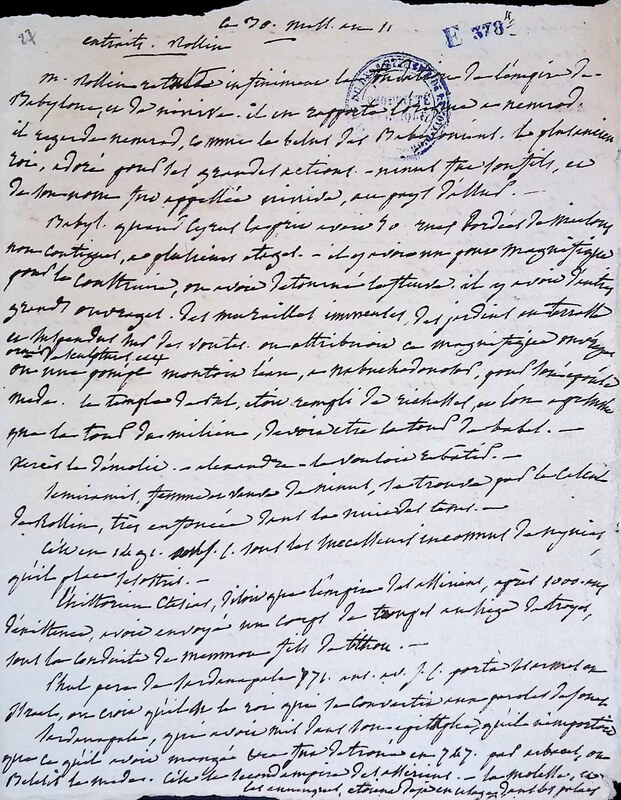 27
ce 30. mess. an 11
E 378
extraits. Rollin
m. Rollin infiniment la fondation de l'empire de
Babylone, et de ninive. il en rapporte l'origine a nemrod,
il regarde nemrod, comme le belus des Babyloniens. le plus ancien
roi, adoré pour ses grandes actions. - ninus fut son fils, et
de son nom fut appellée ninive, au pays d'assur. -
Babyl. quand Cyrus la prit avoit 50 rues bordées de maisons
non contigues, a plusieurs étages. - il y avoit un pont magnifique
pour le construire, on avoit détourné le fleuve. il y avoit d'autres
grands ouvrages. des murailles immenses, des jardins en terrasse
et suspendus sur des voutes. on attribuoit ce magnifique ouvrage
orné de sculptures
ou une pompe montoit l'eau, a nabuchodonosor pour son épouse
mede. le temple de Bel, étoit rempli de richesses, et l'on a pensé
que la tour du milieu, devoit etre la tour de babel. -
Xerxès le démolit. - alexandre - le vouloit rebatir. -
Semiramis, femme et veuve de ninus, se trouve par le calcul
de Rollin, très enfoncée dans la nuit des tems. -
C'est en 1491. av. J. C. sous les successeurs inconnus de ninias,
qu'il place sesostris. -
L'historien Ctesias, disoit que l'empire des assiriens, après 1000 ans
d'existence, avoit envoyé un corps de troupes au siege de troyes,
sous la conduite de memnon fils de tithon. -
Phul pere de sardanapale 771. ans. av. J. C. porta les armes en
Israel, on croit qu'il est le roi que se convertit aux paroles de Jonas
Sardanapale, que avoit mis dans son epitaphe, qu'il n'emportoit
que ce qu'il avoit mangé fut détroné en 747. par arbaces, ou
Belesis le mede. C'est le second empire des assiriens. - la molesse, et
les eunuques, étoient deja en usage dans les palais